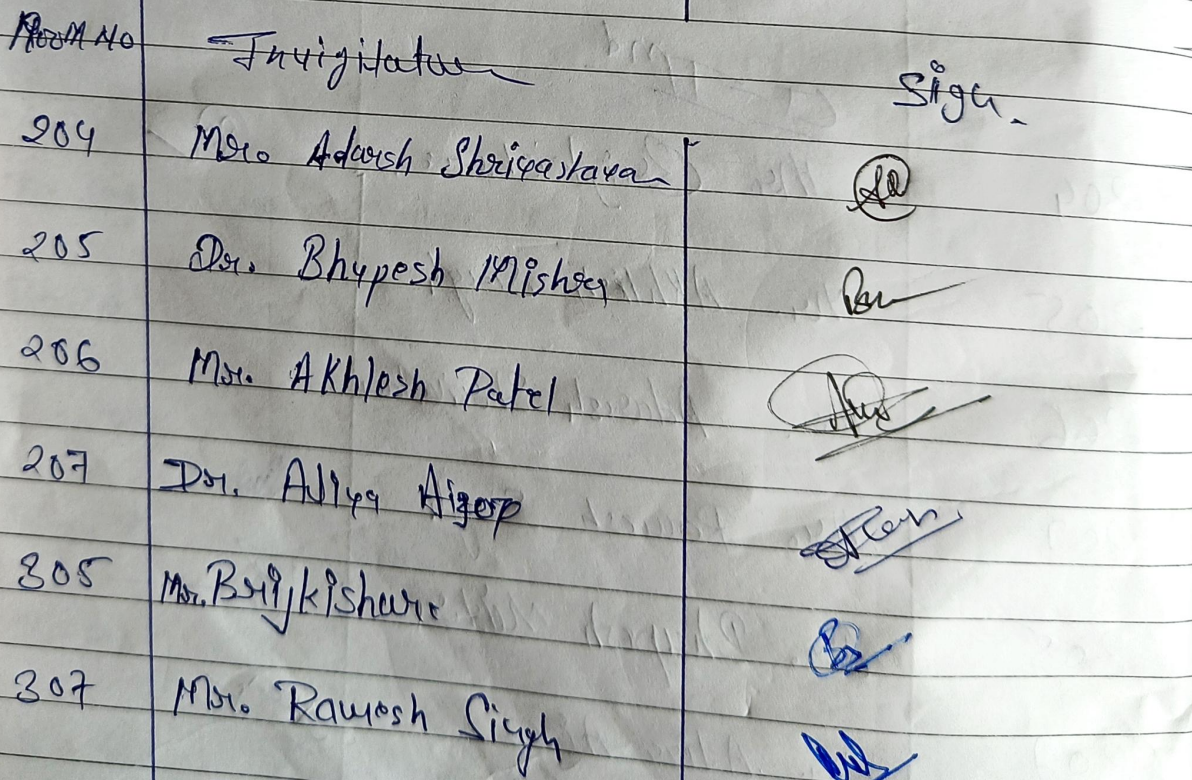 Room No Invigilator Sign.
204 Mr. Adarsh Shrivastava
205 Dr. Bhupesh Mishra
206 Mr. Akhlesh Patel
207 Dr.
305 Mr. Brijkishore
307 Mr. Ramesh Singh